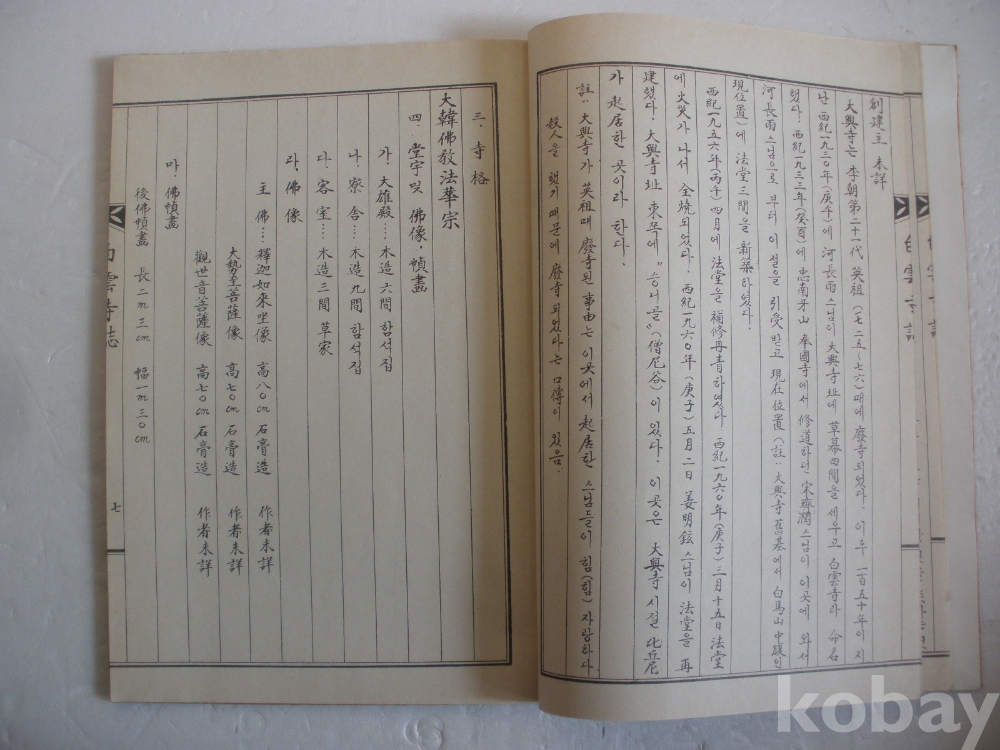 創建主 未詳
大興寺는 李朝第二十一代 英祖(七二五~七六)때에 廢寺되었다. 이후 一百五十年이 지
난 西紀一九三○年(庚午)에 河長雨스님이 大興寺址에 草幕四間을 세우고 白雲寺라 命名
했다. 西紀一九三三年(癸酉)에 忠南牙山 奉國寺에서 修道하던 宋齊潤스님이 이곳에 와서
河長雨스님으로 부터 이절을 引受받고 現在位置(註:大興寺 舊基에서 白馬山 中腹인
現位置)에 法堂三間을 新築하였다.
西紀一九五六年(丙午) 四月에 法堂을 補修丹青하였다. 西紀一九六○年(庚子) 三月十五日 法堂
에 火災가 나서 全燒되었다. 西紀一九六○年(庚子)五月二日 姜明鉉스님이 法堂을 再
建했다. 大興寺址 東쪽에 "승니골"(僧尼谷)이 있다. 이곳은 大興寺 시절 比丘尼
가 起居한 곳이라 한다.
註: 大興寺가 英祖때 廢寺된 事由는 이곳에서 起居한 스님들이 힘(힘) 자랑하다
殺人을 했기 때문에 廢寺되었다는 口傳이 있음.
三. 寺格
大韓佛敎法華宗
四. 堂宇 및 佛像·幀畵
가. 大雄殿…木造 六間 함석집
나. 寮舍…木造 九間 함석집
다. 客室…木造 三間 草家
라. 佛像
主佛…釋迦如來坐像 高八○cm 石膏造 作者未詳
大勢至菩薩像 高七○cm 石膏造 作者未詳
觀世音菩薩像 高七○cm 石膏造 作者未詳
마. 佛幀畵
後佛幀畵 長二m三○cm 幅一m三○cm
白雲寺誌
七
kobay